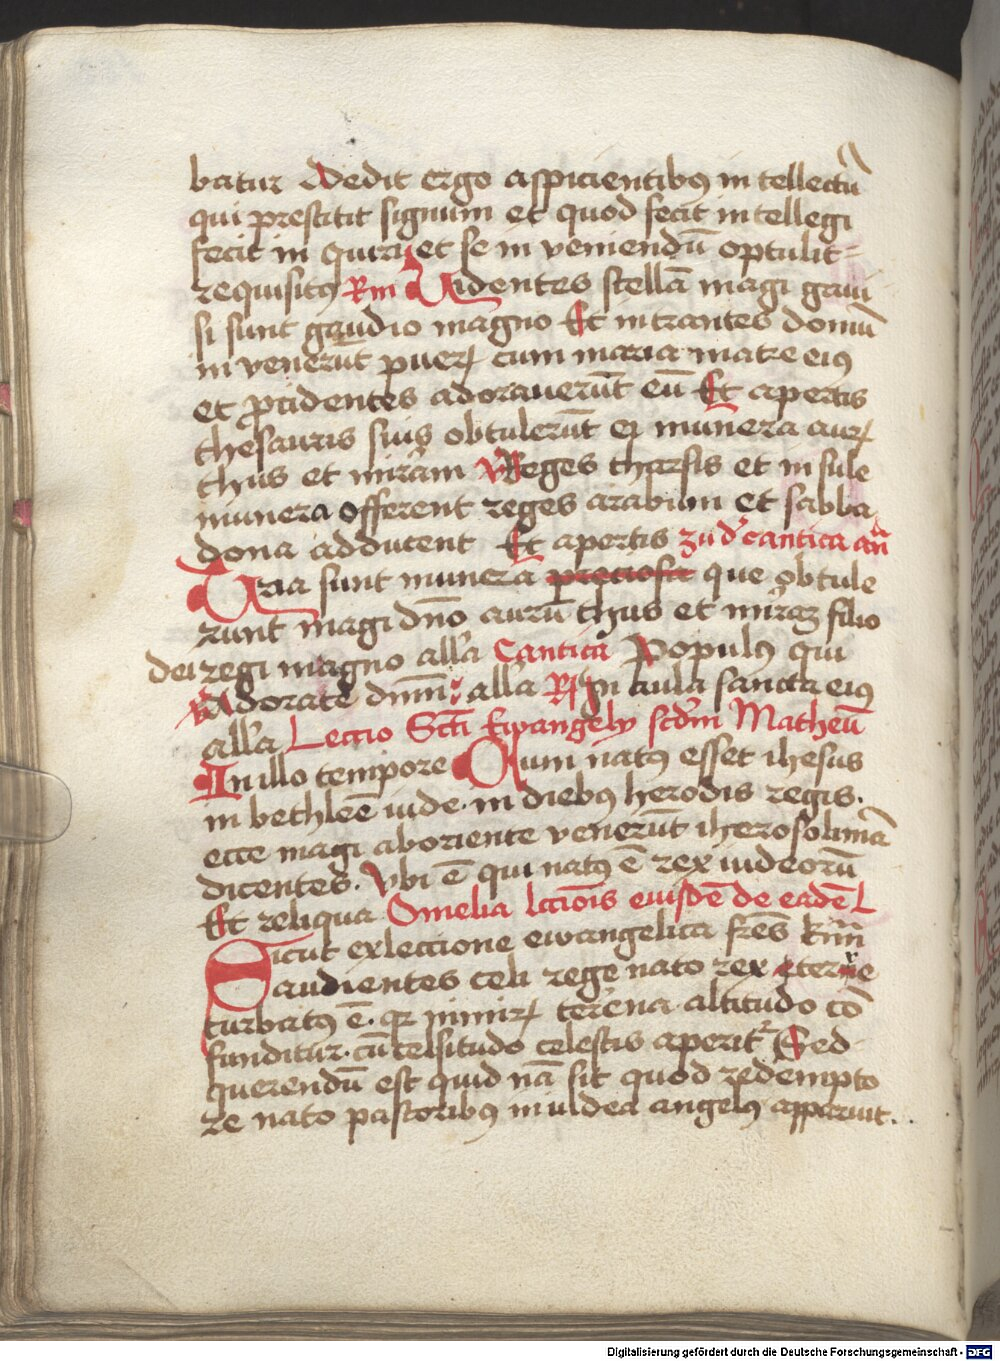 batur Dedit ergo aspicientibus in tellectū
qui prestitit signum et quod fecit intellegi
fecit in quiri et se in veniendū optulit
requisitus Rm Uidentes stellā magi gaui
si sunt gaudio magno Et intrantes domū
in venerūt puerꝝ cum maria matre eius
et ꝓcidentes adorauerūt eū Et apertis
thesauris suis obtulerūt ei munera aurꝝ
thus et mirām V Reges tharsis et in sule
munera offerent reges arabum et sabba
dona adducent Et apertis zu dˢ cantica an̄
Tria sunt munera preciosa que obtule
runt magi dn̄o aurū thus et mirāꝫ filio
dei regi magno all'a Cantica Populus qui
V Adorate dnm̄ all'a R In aula sancta eius
all'a Lectio Scti Ewangely scdm̄ Matheū
In illo tempore Cum natus esset ihesus
in bethleē iude. in diebus herodis regis.
ecce magi aboriente venerūt iherosolimā
dicentes. Vbi ē qui natus ē rex iudeorū
Et reliqua Omelia lccōis euisdē de eadē L
Sicut exleccione ewangelica frēs krm̄
audientes celi rege nato rex terre
turbatus ē. qꝛ nimirꝝ terrena altitudo cō
funditur. cū celsitudo celestis aperitᷣ Sed
querendū est quid nā sit quod redempto
re nato pastoribus iniudea angelus apparuit..
Digitalisierung gefördert durch die Deutsche Forschungsgemeinschaft - DFG